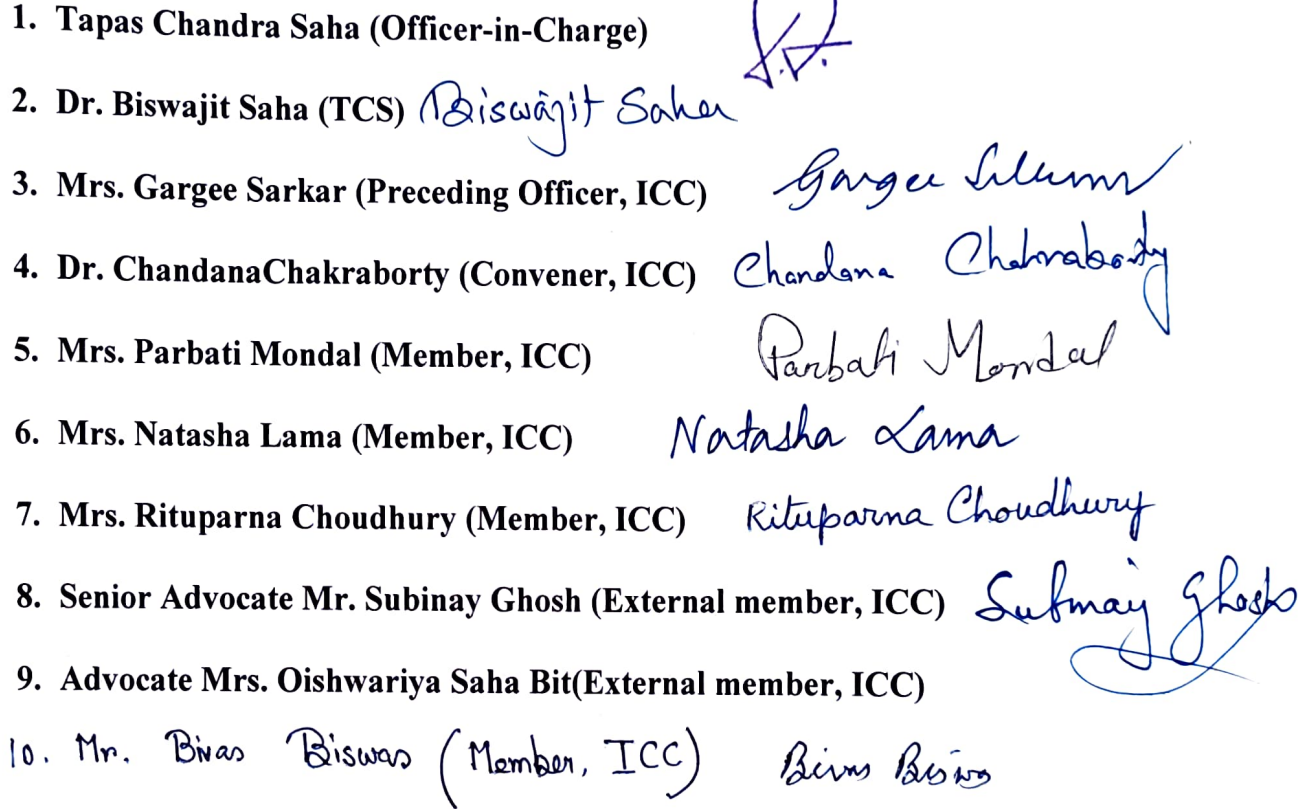 1. Tapas Chandra Saha (Officer-in-Charge)
2. Dr. Biswajit Saha (TCS) Biswajit Saha
3. Mrs. Gargee Sarkar (Preceding Officer, ICC) Gargee
4. Dr. ChandanaChakraborty (Convener, ICC) Chandana Chakraborty
5. Mrs. Parbati Mondal (Member, ICC) Parbati Mondal
6. Mrs. Natasha Lama (Member, ICC) Natasha Lama
7. Mrs. Rituparna Choudhury (Member, ICC) Rituparna Choudhury
8. Senior Advocate Mr. Subinay Ghosh (External member, ICC) Subinay Ghosh
9. Advocate Mrs. Oishwariya Saha Bit(External member, ICC)
10. Mr. Bivas Biswas (Member, ICC) Bivas Biswas